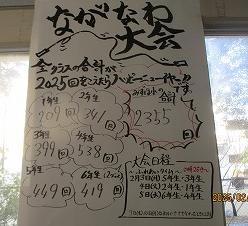 ながなわ
大会
全クラスの合計が
2025回をこえたらハッピーニューイヤー
1年生
209回
2年生
341回
合計
2355
回
3年生
399回
4年生
538回
5年生
449回
6年生
419回
大会日程
2月3日(月) 5年生・3年生
4日(火) 2年生・1年生
5日(水) 6年生・4年生